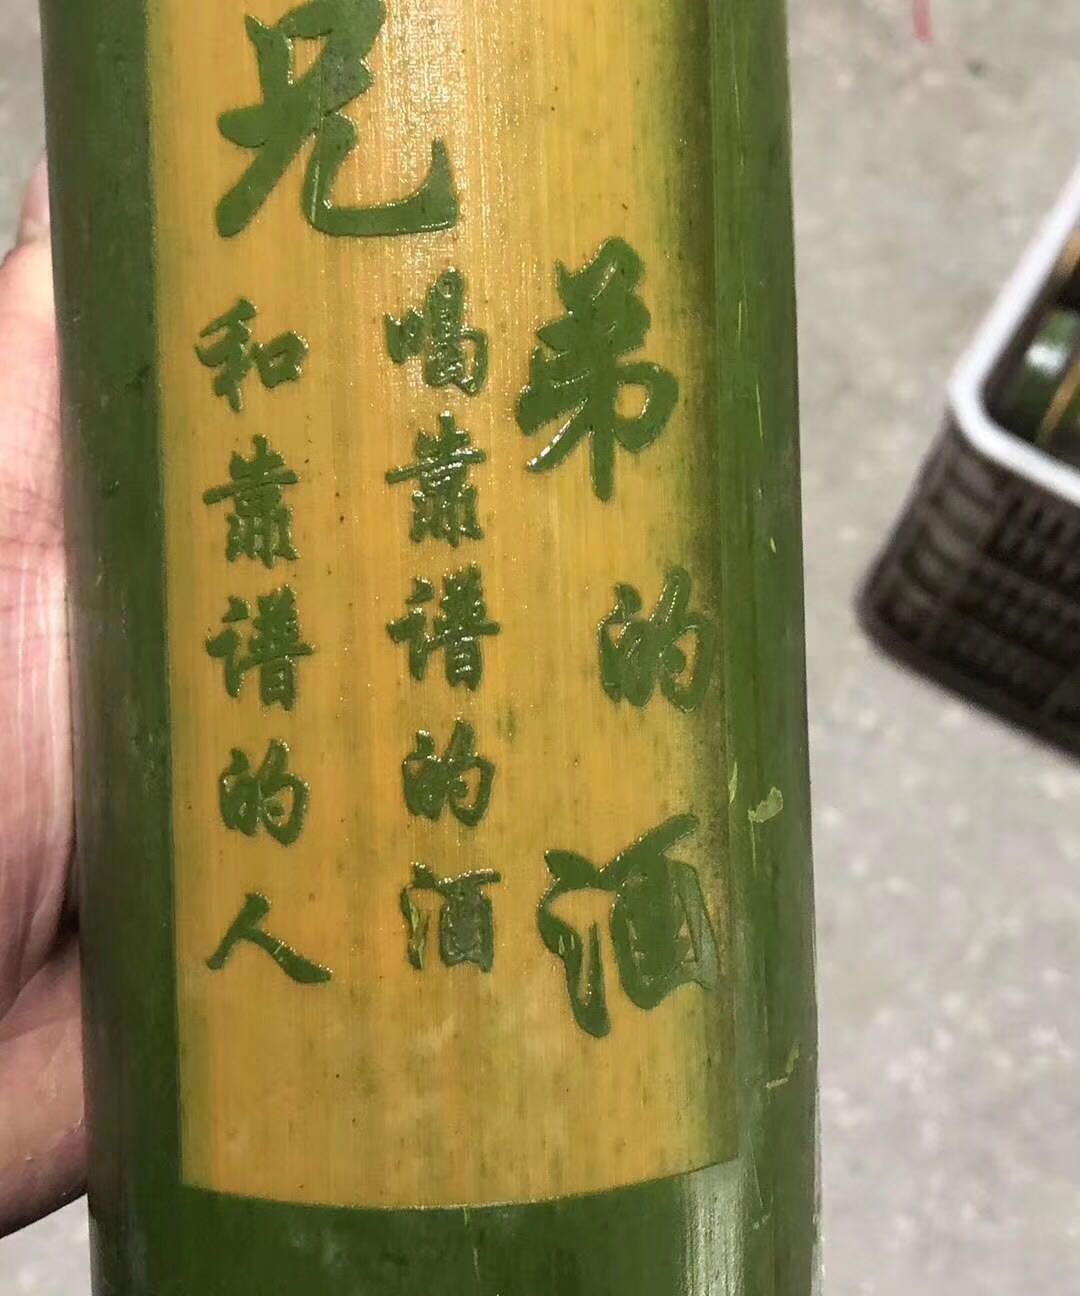 兄
弟的酒
喝靠谱的酒
和靠谱的人